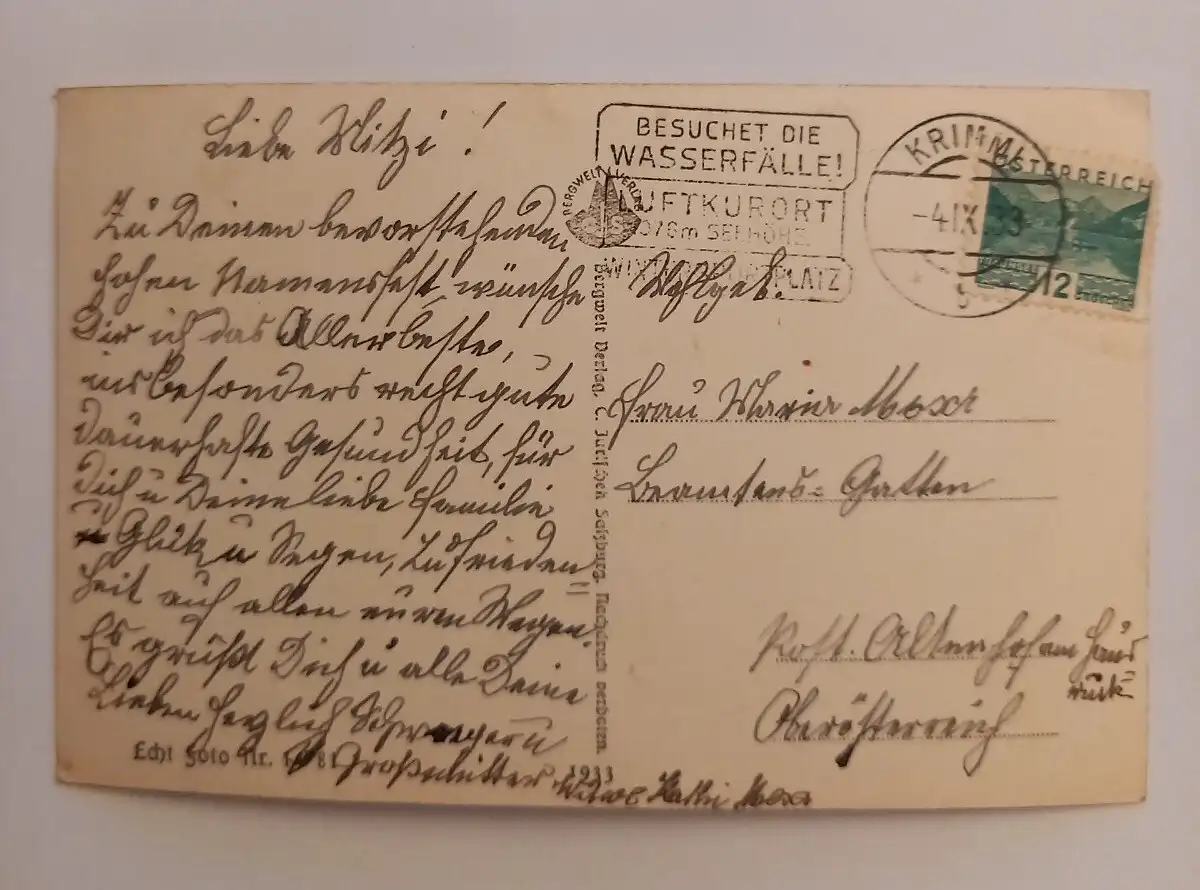 Liebe Mitzi!
Zu Deinen bevorstehenden
hohen Namensfest, wünsche
Dir ich das Allerbeste,
insbesonders recht gute
dauerhafte Gesundheit, für
Dich u Deine liebe Familie
u Glük u Segen, Zufrieden
heit auf allen euren Wegen!
Es grüßt Dich u alle Deine
Lieben herzlich Schwægerin
Großmutter, Witwe
Echt Foto Nr.
1933
Bergwelt Verlag, C. Jurischek Salzburg. Nachdruck verboten.
BERGWELT VERLAG
BESUCHET DIE
WASSERFÄLLE!
LUFTKURORT
1076m SEEHÖHE
WINTERSPORTPLATZ
KRIMML
-4.IX.33
ÖSTERREICH
12
Wohlgeb.
Frau Maria
Beamtens-Gatten
Post. Altenhof am Haus
ruck
Oberösterreich